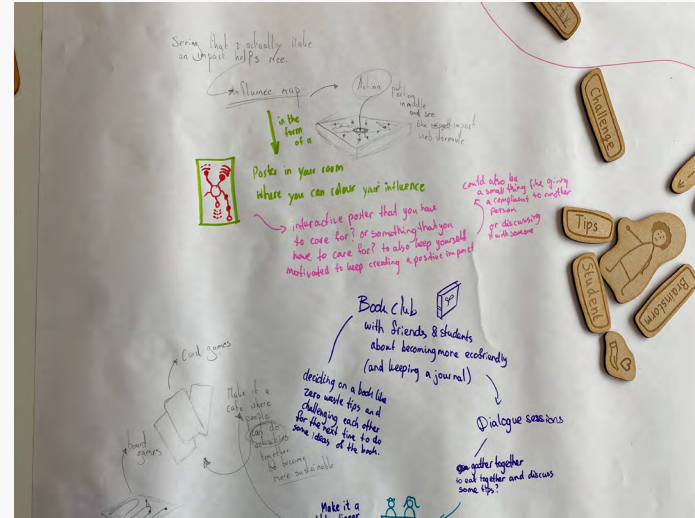 Seeing that I actually make
an impact helps me.
Influence map
Action
put
action
in middle
and see
the impact
web underneath
in the
form
of a
Poster in your room
Where you can colour your influence
interactive poster that you have
to care for? or something that you
have to care for? to also keep yourself
motivated to keep creating a positive impact
could also be
a small thing like giving
a compliment to another
person
or discussing
it with someone
Challenge
Tips
Student
Brainstorm
Book club
with friends & students
about becoming more ecofriendly
(and keeping a journal)
deciding on a book like
zero waste tips and
challenging each other
for the next time to do
some ideas of the book.
Dialogue sessions
gather together
to eat together and discuss
some tips?
Card games
board games
Make it a
cafe where
people
can do
activities
together
to become
more sustainable
Make it a